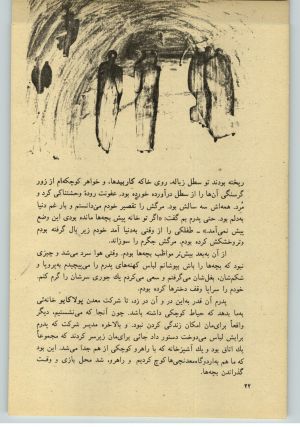 ریخته بودند تو سطل زباله، روی خاکه کاربیدها، و خواهر کوچکه‌ام از زور
گرسنگی آن‌ها را از سطل درآورده خورده بود. عفونت رودهٔ وحشتناکی کرد و
مرد. همه‌اش سه سالش بود. مرگش را تقصیر خودم می‌دانستم و بار غم دنیا
به‌دلم بود. حتی پدرم بم گفت: «اگر تو خانه پیش بچه‌ها مانده بودی این وضع
پیش نمی‌آمد» ـ طفلکی از وقتی به‌دنیا آمد خودم زیر بال گرفته بودم
وتروخشکش کرده بودم. مرگش جگرم را سوزاند.
از آن به‌بعد بیش‌تر مواظب بچه‌ها بودم. وقتی هوا سرد می‌شد و چیزی
نبود که بچه‌ها را باش بپوشانم لباس کهنه‌های پدرم را می‌پیچیدم به‌پروپا و
شکم‌شان، بغل‌شان می‌گرفتم و سعی می‌کردم یك جوری سرشان را گرم کنم.
خودم را سراپا وقف دخترها کرده بودم.
پدرم آن قدر به‌این در و آن در زد، تا شرکت معدن پولاکایو خانه‌ئی
به‌ما بدهد که حیاط کوچکی داشته باشد. چون آن جا که می‌نشستیم، دیگر
واقعاً برای‌مان امکان زندگی کردن نبود. و بالاخره مدیر شرکت که پدرم
برایش لباس می‌دوخت دستور داد جائی برای‌مان زیرسر کردند که مجموعاً
یك اتاق بود و یك آشپزخانه که با راهرو کوچکی از هم جدا می‌شد. این بود
که ما هم به‌اردوگاه‌معدنچی‌ها کوچ کردیم و راهرو، شد محل بازی و وقت
گذراندن بچه‌ها.
۲۲